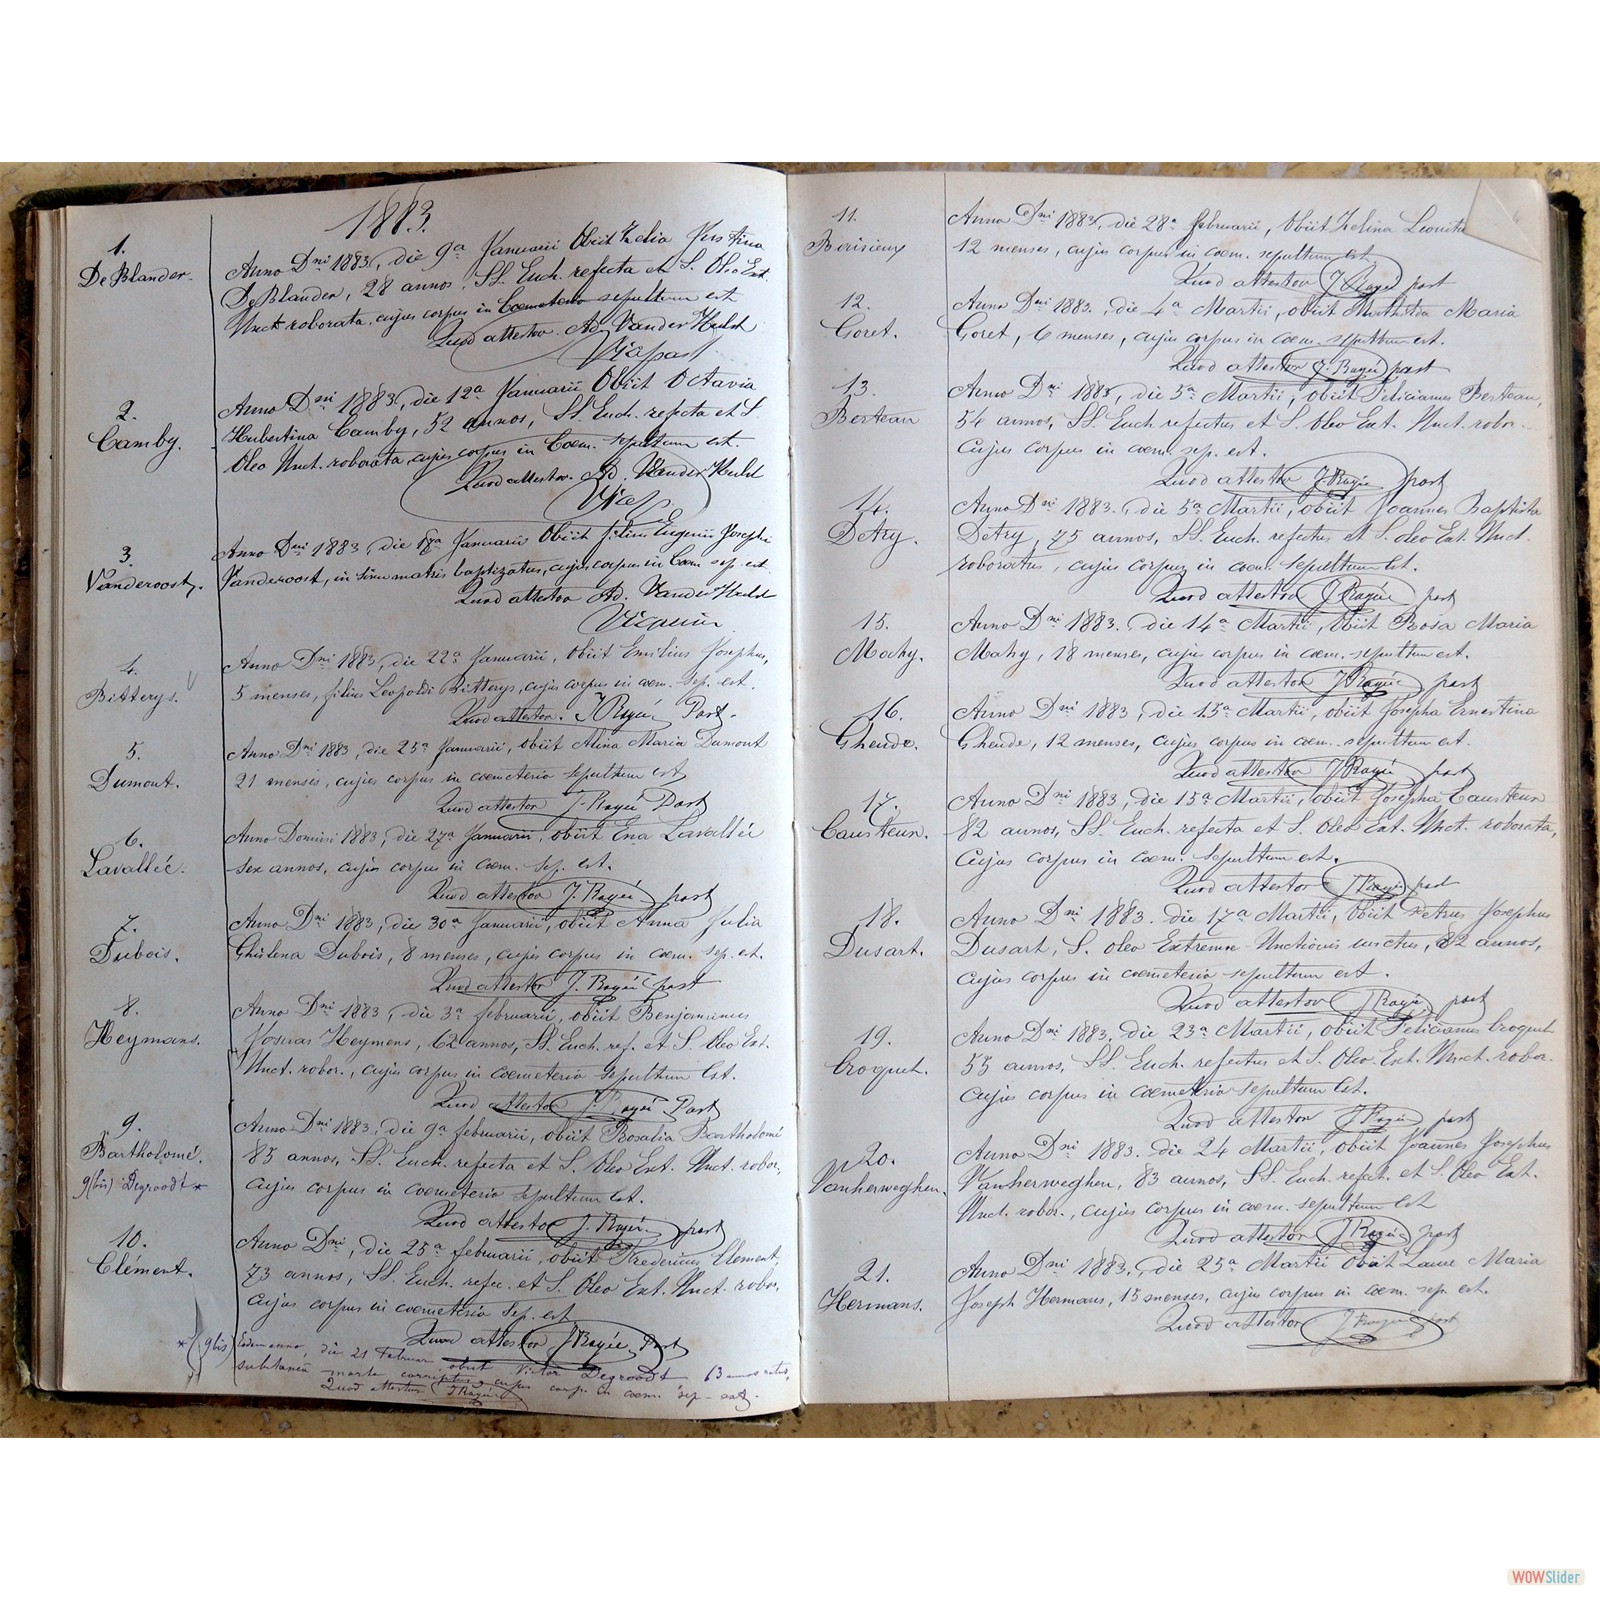 1883.
1.
De Blander.
Anno Dni 1883, die 9a Januarii Obiit Zelia Justina
De Blander, 28 annos, SS. Euch. refecta et S. Oleo Ext.
Unct. roborata, cujus corpus in Coemeterio sepultum est
Quod attestor. Ad. Vander Huld
2.
Camby.
Anno Dni 1883, die 12a Januarii Obiit Octavia
Hubertina Camby, 52 annos, SS. Euch. refecta et S.
Oleo Unct. roborata, cujus corpus in Coem. sepultum est.
Quod attestor. Ad. Vander Huld
3.
Vanderoost.
Anno Dni 1883, die 17a Januarii Obiit filius Eugenii Josephi
Vanderoost, in sinu matris baptizatus, cujus corpus in Coem. sep. est.
Quod attestor Ad. Vander Huld
4.
Bitterys.
Anno Dni 1883, die 22a Januarii, obiit Emilius Josephus,
5 menses, filius Leopoldi Bitterys, cujus corpus in coem. sep. est.
Quod attestor. J Rayée Past.
5.
Dumont.
Anno Dni 1883, die 25a Januarii, obiit Alina Maria Dumont
21 menses, cujus corpus in coemeterio sepultum est
Quod attestor J. Rayée Past
6.
Lavallée.
Anno Domini 1883, die 27a Januarii, obiit Ena Lavallée
sex annos, cujus corpus in coem. sep. est.
Quod attestor J. Rayée past
7.
Dubois.
Anno Dni 1883, die 30a Januarii, obiit Anna Julia
Ghislena Dubois, 8 menses, cujus corpus in coem. sep. est.
Quod attestor J. Rayée past
8.
Heymans.
Anno Dni 1883, die 3a februarii, obiit Benjaminus
Heymens, 62 annos, SS. Euch. ref. et S. Oleo Ext.
Unct. robor., cujus corpus in coemeterio sepultum Est.
Quod attestor J. Rayée Past
9.
Bartholomé.
9(bis) Degroodt *
Anno Dni 1883, die 9a februarii, obiit Rosalia Bartholomé
85 annos, SS. Euch. refecta et S. Oleo Ext. Unct. robor,
cujus corpus in coemeterio sepultum Est.
Quod attestor J. Rayée past
10.
Clément.
Anno Dni, die 25a februarii, obiit Fredericus Clement,
73 annos, SS. Euch. refec. et S. Oleo Ext. Unct. robor,
cujus corpus in coemeterio Sep. est
Quod attestor J Rayée Past
* (9bis) Eodem anno, die 21 Februar obiit Victor Degroodt 63 annos natus,
subitanea morte correptus, cujus corp. in coem. sep. est.
Quod attestor J Rayée
11.
Berisieux
Anno Dni 1883, die 28a februarii, obiit Zelina
12 menses, cujus corpus in coem. sepultum est
Quod attestor J Rayée past
12.
Goret.
Anno Dni 1883, die 4a Martii, obiit Mathilda Maria
Goret, 6 menses, cujus corpus in coem. sepultum est.
Quod attestor J. Rayée past
13
Berteau
Anno Dni 1883, die 5a Martii, obiit Felicianus Berteau,
54 annos, SS. Euch refectus et S. Oleo Ext. Unct. robor.
cujus corpus in coem. sep. est.
Quod attestor J Rayée past
14.
Detry.
Anno Dni 1883, die 5a Martii, obiit Joannes Baptista
Detry, 75 annos, SS. Euch. refectus et S. oleo Ext. Unct.
roboratus, cujus corpus in coem. sepultum Est.
Quod attestor J Rayée past
15.
Mahy.
Anno Dni 1883, die 14a Martii, obiit Rosa Maria
Mahy, 18 menses, cujus corpus in coem. sepultum est.
Quod attestor J Rayée past
16.
Gheude.
Anno Dni 1883, die 15a Martii, obiit Josepha Ernestina
Gheude, 12 menses, cujus corpus in coem. sepultum est.
Quod attestor J Rayée past
17.
Anno Dni 1883, die 15a Martii, obiit Josepha
82 annos, SS. Euch. refecta et S. Oleo Ext. Unct. roborata,
cujus corpus in coem. sepultum est.
Quod attestor J Rayée past
18.
Dusart.
Anno Dni 1883. die 17a Martii, obiit Petrus Josephus
Dusart, S. oleo Extremae Unctionis unctus, 82 annos,
cujus corpus in coemeterio sepultum est.
Quod attestor J Rayée past
19.
Croquet.
Anno Dni 1883. die 23a Martii, obiit Felicianus Croquet
55 annos, SS. Euch. refectus et S. Oleo Ext. Unct. robor.
cujus corpus in coemeterio sepultum Est.
Quod attestor J Rayée past
20.
Vanherweghen.
Anno Dni 1883. die 24 Martii, obiit Joannes Josephus
Vanherweghen, 83 annos, SS. Euch. refect. et S. Oleo Ext.
Unct. robor., cujus corpus in coem. sepultum est
Quod attestor J Rayée past
21.
Hermans.
Anno Dni 1883, die 25a Martii obiit Laure Maria
Joseph Hermans, 15 menses, cujus corpus in coem. sep. est.
Quod attestor J Rayée past
WOWSlider